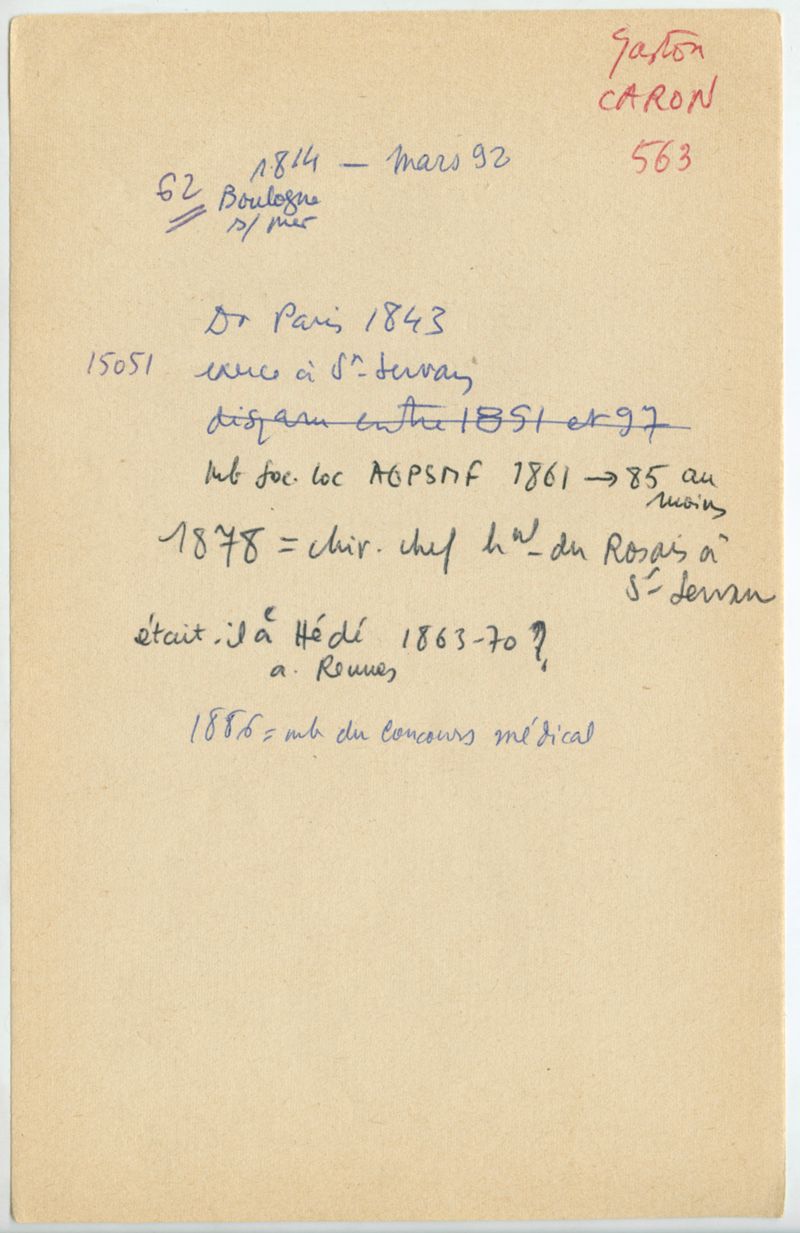 Gaston
CARON
563
1814 – Mars 92
62 Boulogne
s/ mer
Dr Paris 1843
15051 exerce à St-Servan
disparu entre 1891 et 97
mb Soc. loc AGPSMF 1861 → 85 au
moins
1878 = chir. chef hal du Rosais à
St-Servan
était-il à Hédé 1863-70 ?
a. Rennes
1886 = mb du Concours médical